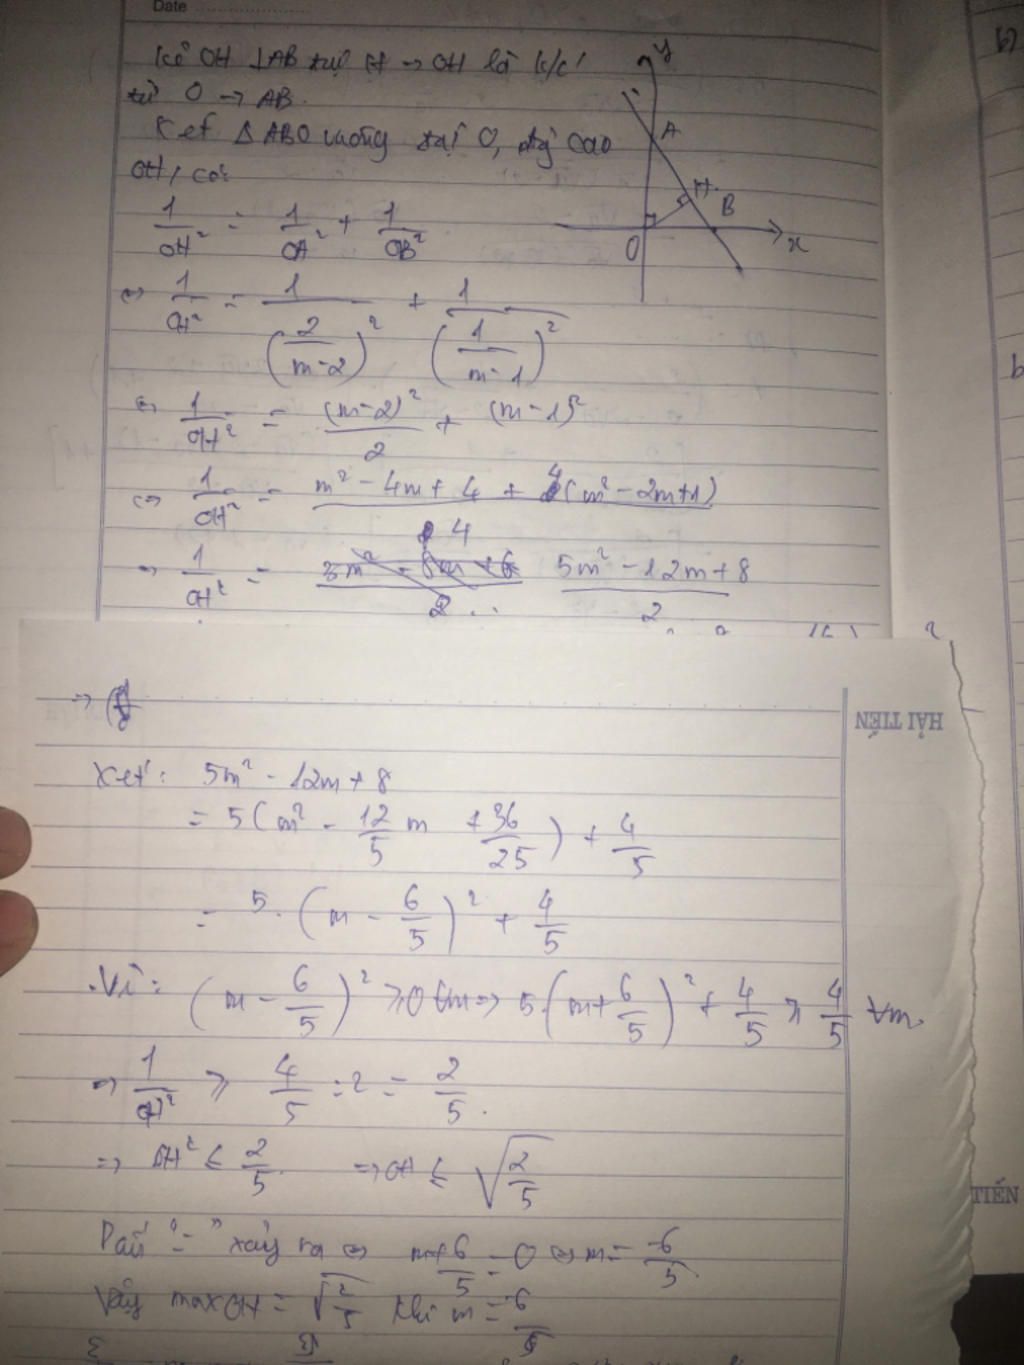 Date
Kẻ OH ⊥ AB tại H → OH là k/c
từ O → AB.
Xét Δ ABO vuông tại O, đg cao
OH, có:
1/OH² = 1/OA² + 1/OB²
⇔ 1/OH² = 1/(2/(m-2))² + 1/(1/(m-1))²
⇔ 1/OH² = (m-2)²/2 + (m-1)²
⇔ 1/OH² = (m² - 4m + 4 + 4(m² - 2m + 1))/4
→ 1/OH² = (5m² - 12m + 8)/2
y
A
H
B
O
x
HẢI TIẾN
Xét: 5m² - 12m + 8
= 5(m² - 12/5 m + 36/25) + 4/5
= 5.(m - 6/5)² + 4/5
Vì: (m - 6/5)² ≥ 0 ∀m ⇒ 5.(m + 6/5)² + 4/5 ≥ 4/5 ∀m.
⇒ 1/OH² ≥ 4/5 : 2 = 2/5.
⇒ OH² ≤ 2/5. ⇒ OH ≤ √(2/5)
Dấu "=" xảy ra ⇔ m + 6/5 = 0 ⇔ m = -6/5.
Vậy max OH = √(2/5) khi m = -6/5
TIẾN